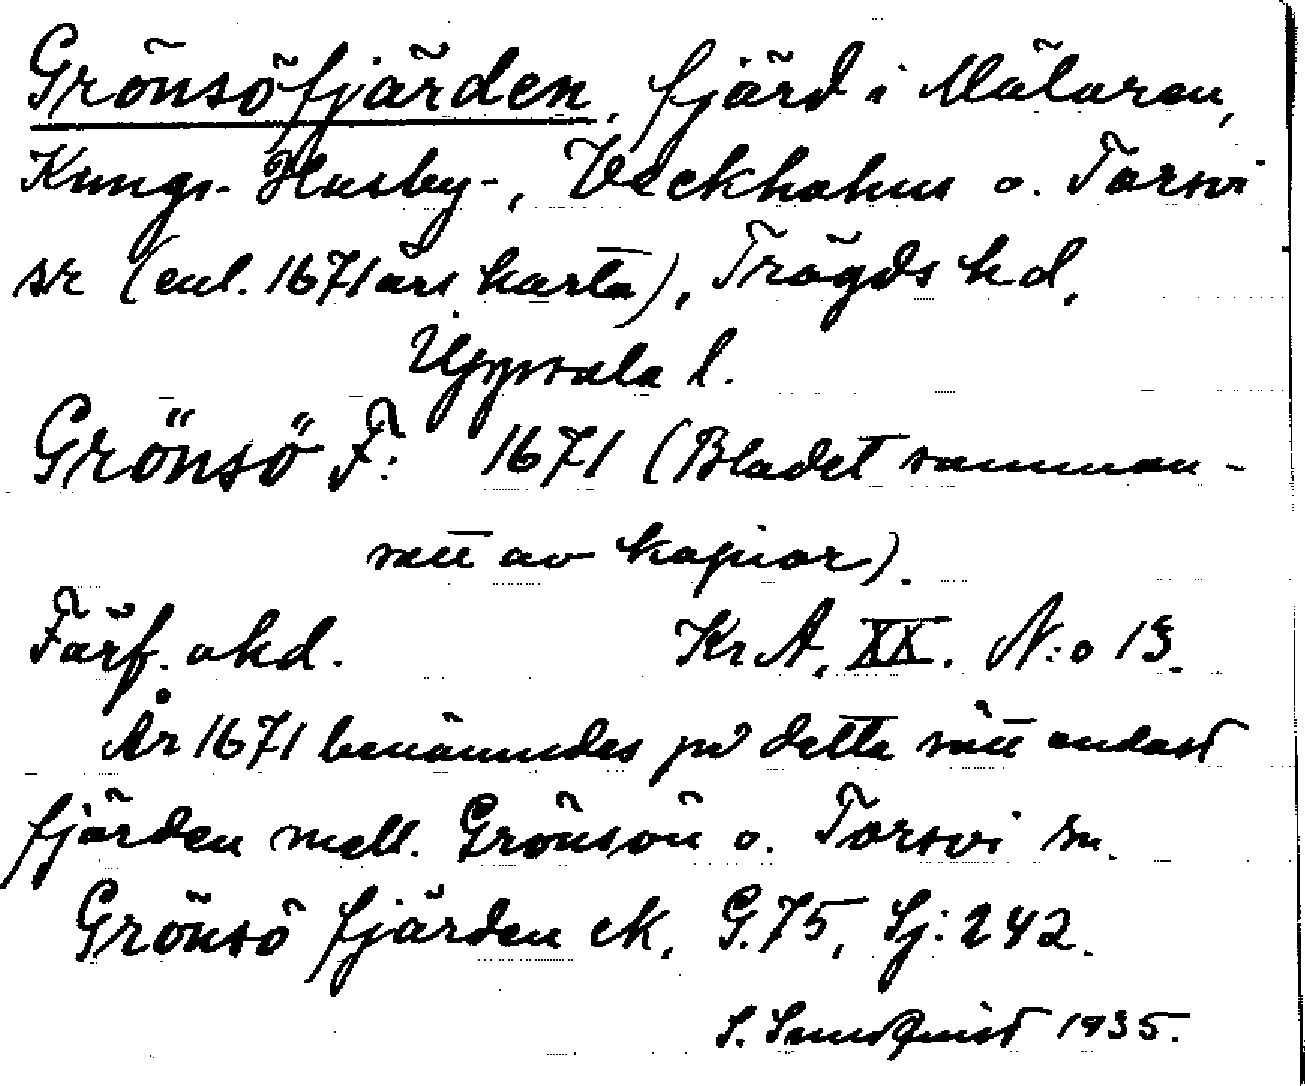 Grönsöfjärden, fjärd i Mälaren,
Kungs-Husby-, Veckholms o. Torsvi
snr (enl. 1671 års karta), Trögds hd,
Uppsala l.
Grönsö F: 1671 (Bladet samman-
satt av kopior).
Förf. okd. KrA, XX. N:o 13.
År 1671 benämndes på detta sätt endast
fjärden mell. Grönsön o. Torsvi sn.
Grönsö fjärden ek. G.75, Sj: 242.
S. Sundquist 1935.